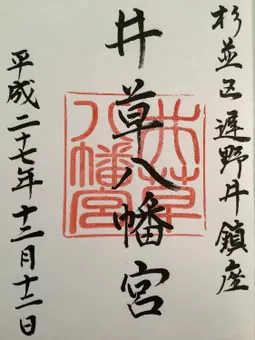 杉並区遅野井鎮座
井草八幡宮
平成二十七年十二月十二日
井草八幡宮